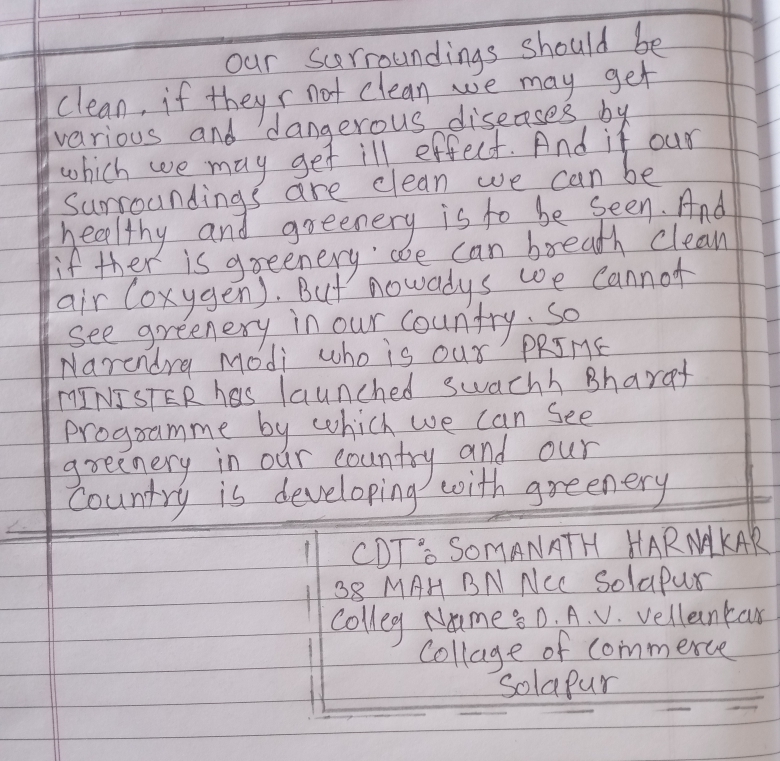 Our surroundings should be
clean, if they r not clean we may get
various and dangerous diseases by
which we may get ill effect. And if our
surroundings are clean we can be
healthy and greenery is to be seen. And
if ther is greenery we can breath clean
air (oxygen). But nowadys we cannot
see greenery in our country. So
Narendra Modi who is our PRIME
MINISTER has launched swachh Bharat
Programme by which we can see
greenery in our country and our
Country is developing with greenery
CDT: SOMANATH HARNALKAR
38 MAH BN NCC Solapur
Colleg Name: D.A.V. Vellankar
Collage of Commerce
Solapur